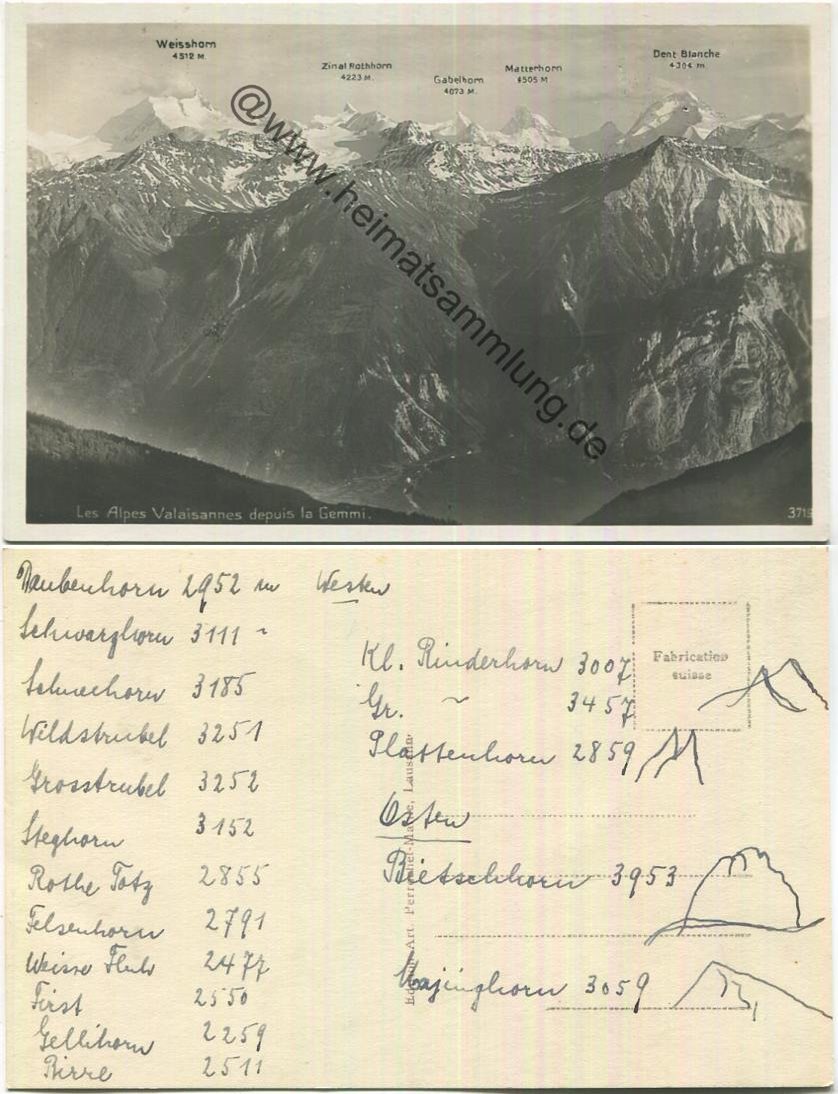 Weisshorn
4512 M.
Zinal Rothhorn
4223 M.
Gabelhorn
4073 M.
Matterhorn
4505 M
Dent Blanche
4364 m.
@www.heimatsammlung.de
Les Alpes Valaisannes depuis la Gemmi.
3719
Daubenhorn 2952 m Westen
Schwarzhorn 3111 ~
Schneehorn 3185
Wildstrubel 3251
Grosstrubel 3252
Steghorn 3152
Rothe Totz 2855
Felsenhorn 2791
Weisse Fluh 2477
First 2550
Gellihorn 2259
Birre 2511
Kl. Rinderhorn 3007
Gr. ~ 3457
Plattenhorn 2859
Osten
Bietschhorn 3953
Majinghorn 3059
Fabrication
suisse
Art. Perrochet-Matile, Lausanne